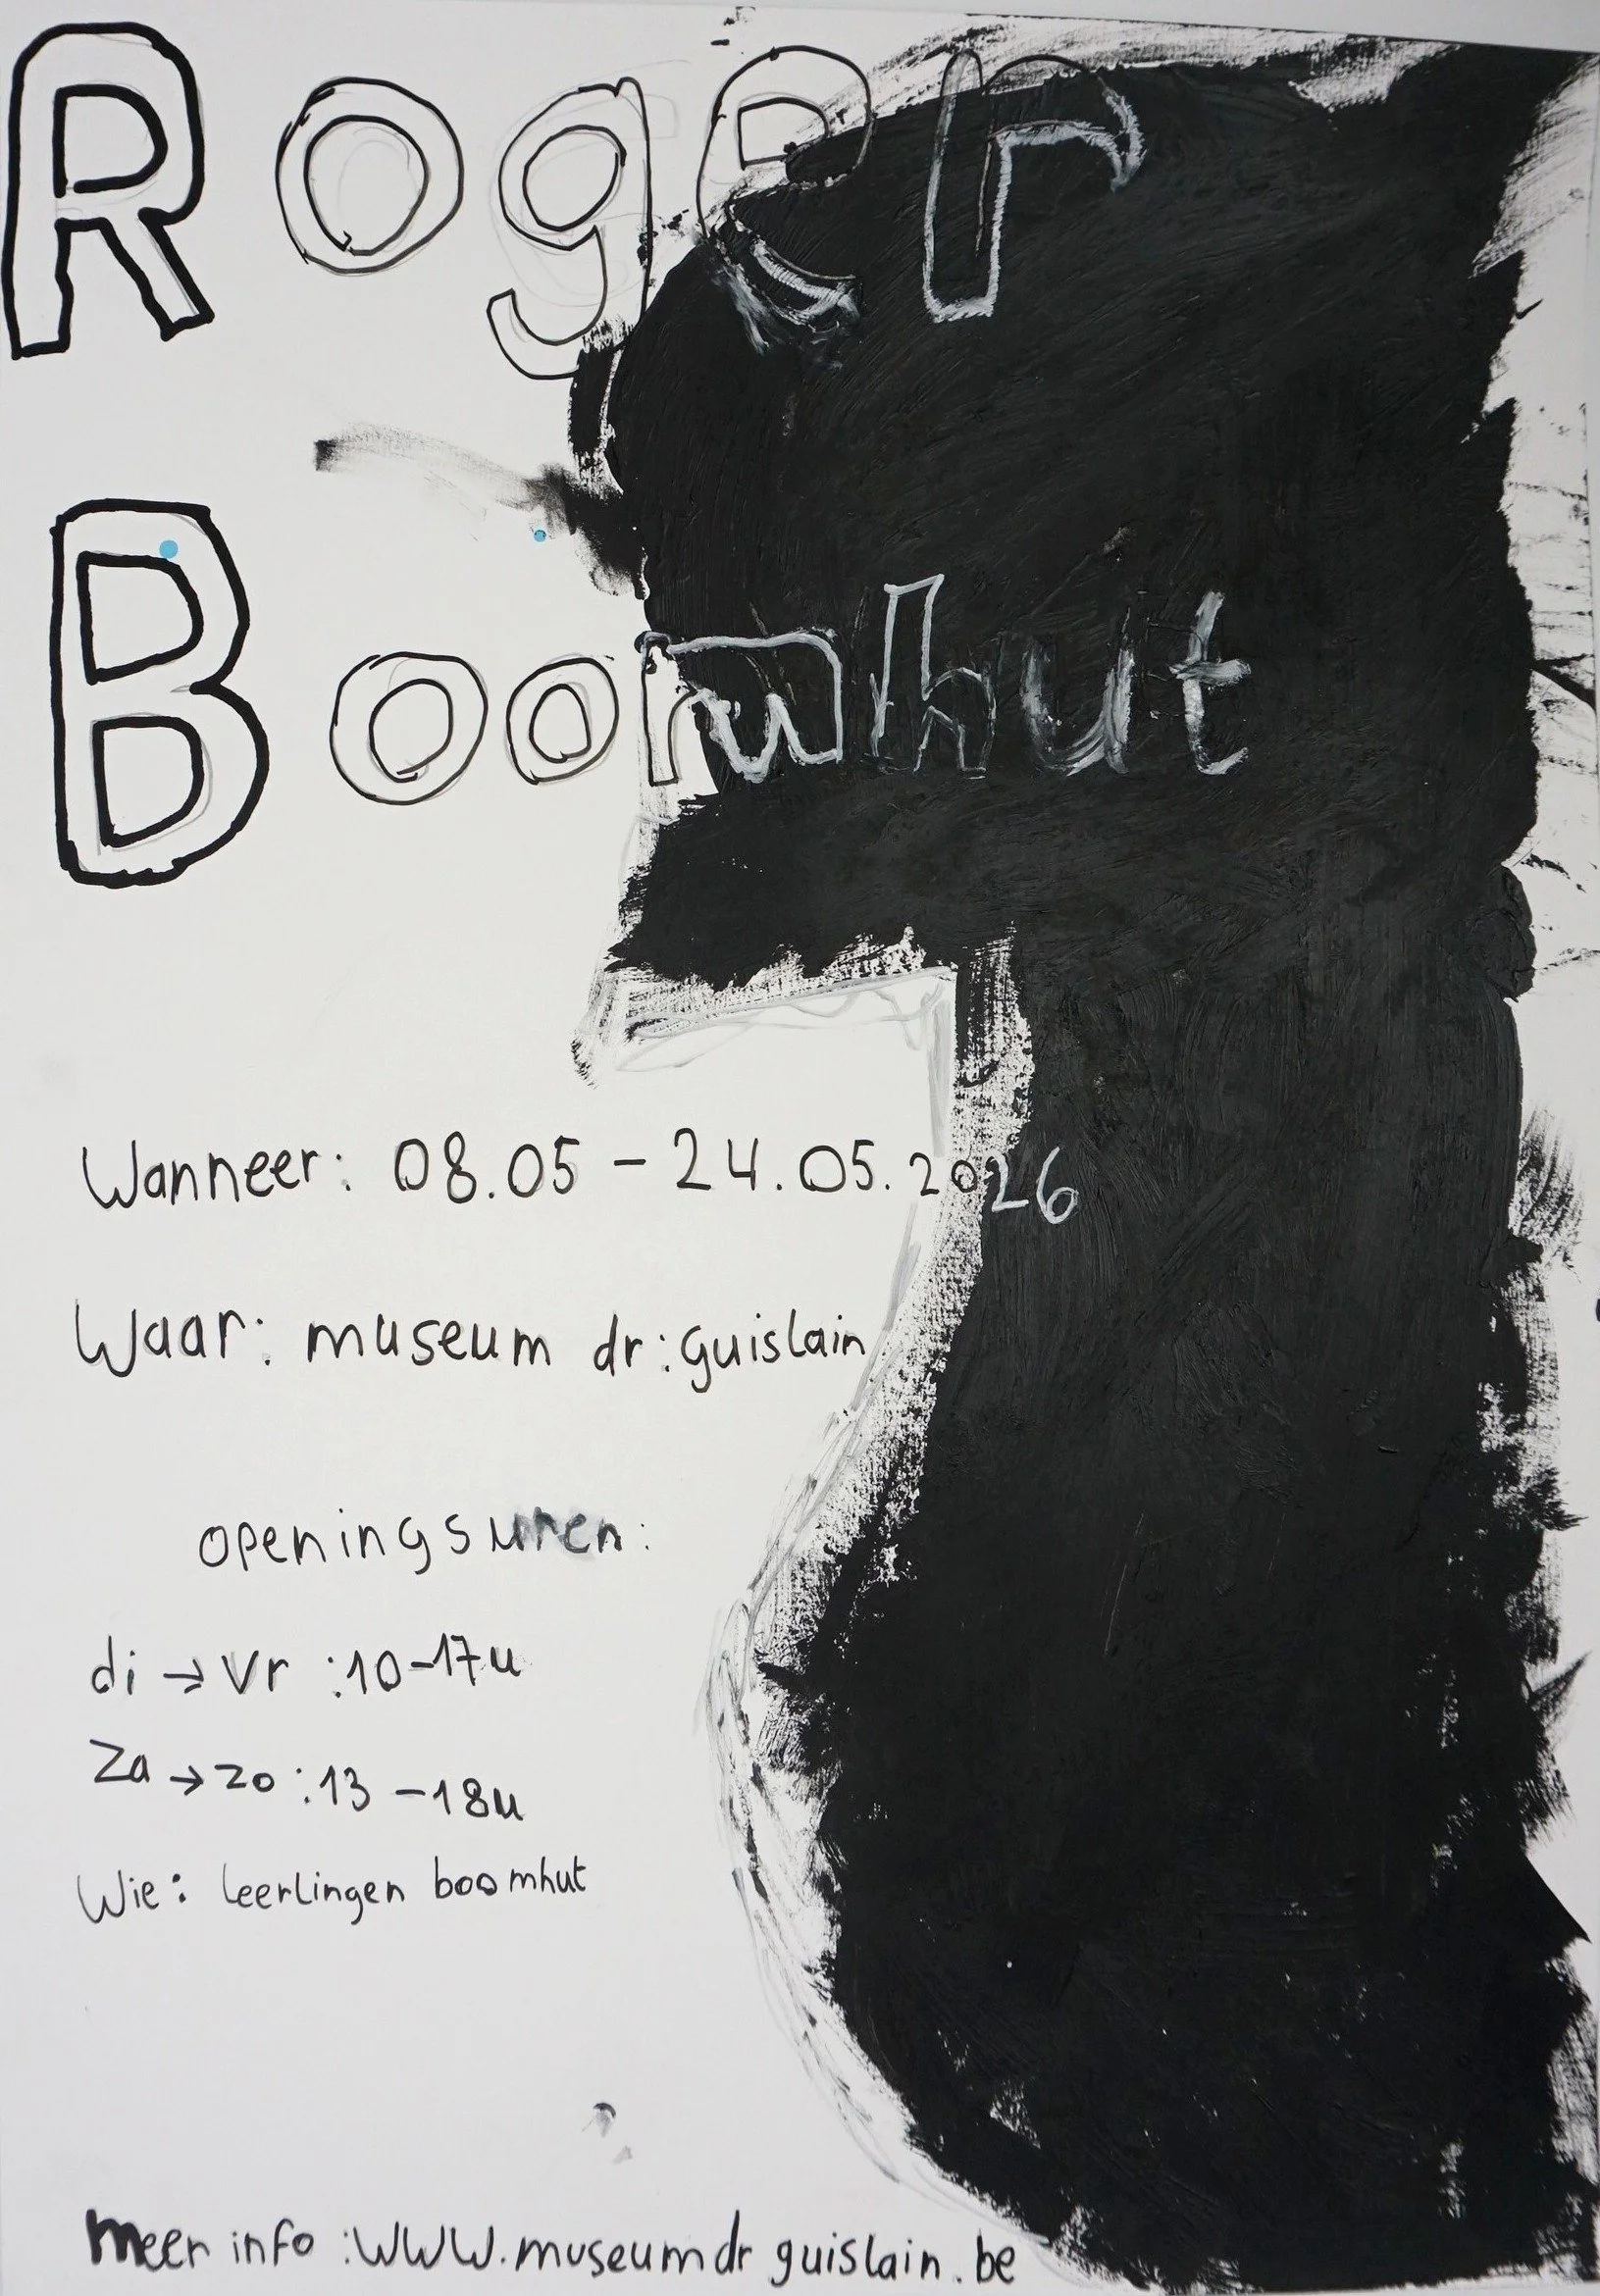 Roger
Boomhut
Wanneer: 08.05 - 24.05.2026
Waar: museum dr:guislain
openingsuren:
di → vr :10-17u
Za → zo :13 -18u
Wie: leerlingen boomhut
meer info :WWW.museumdrguislain.be